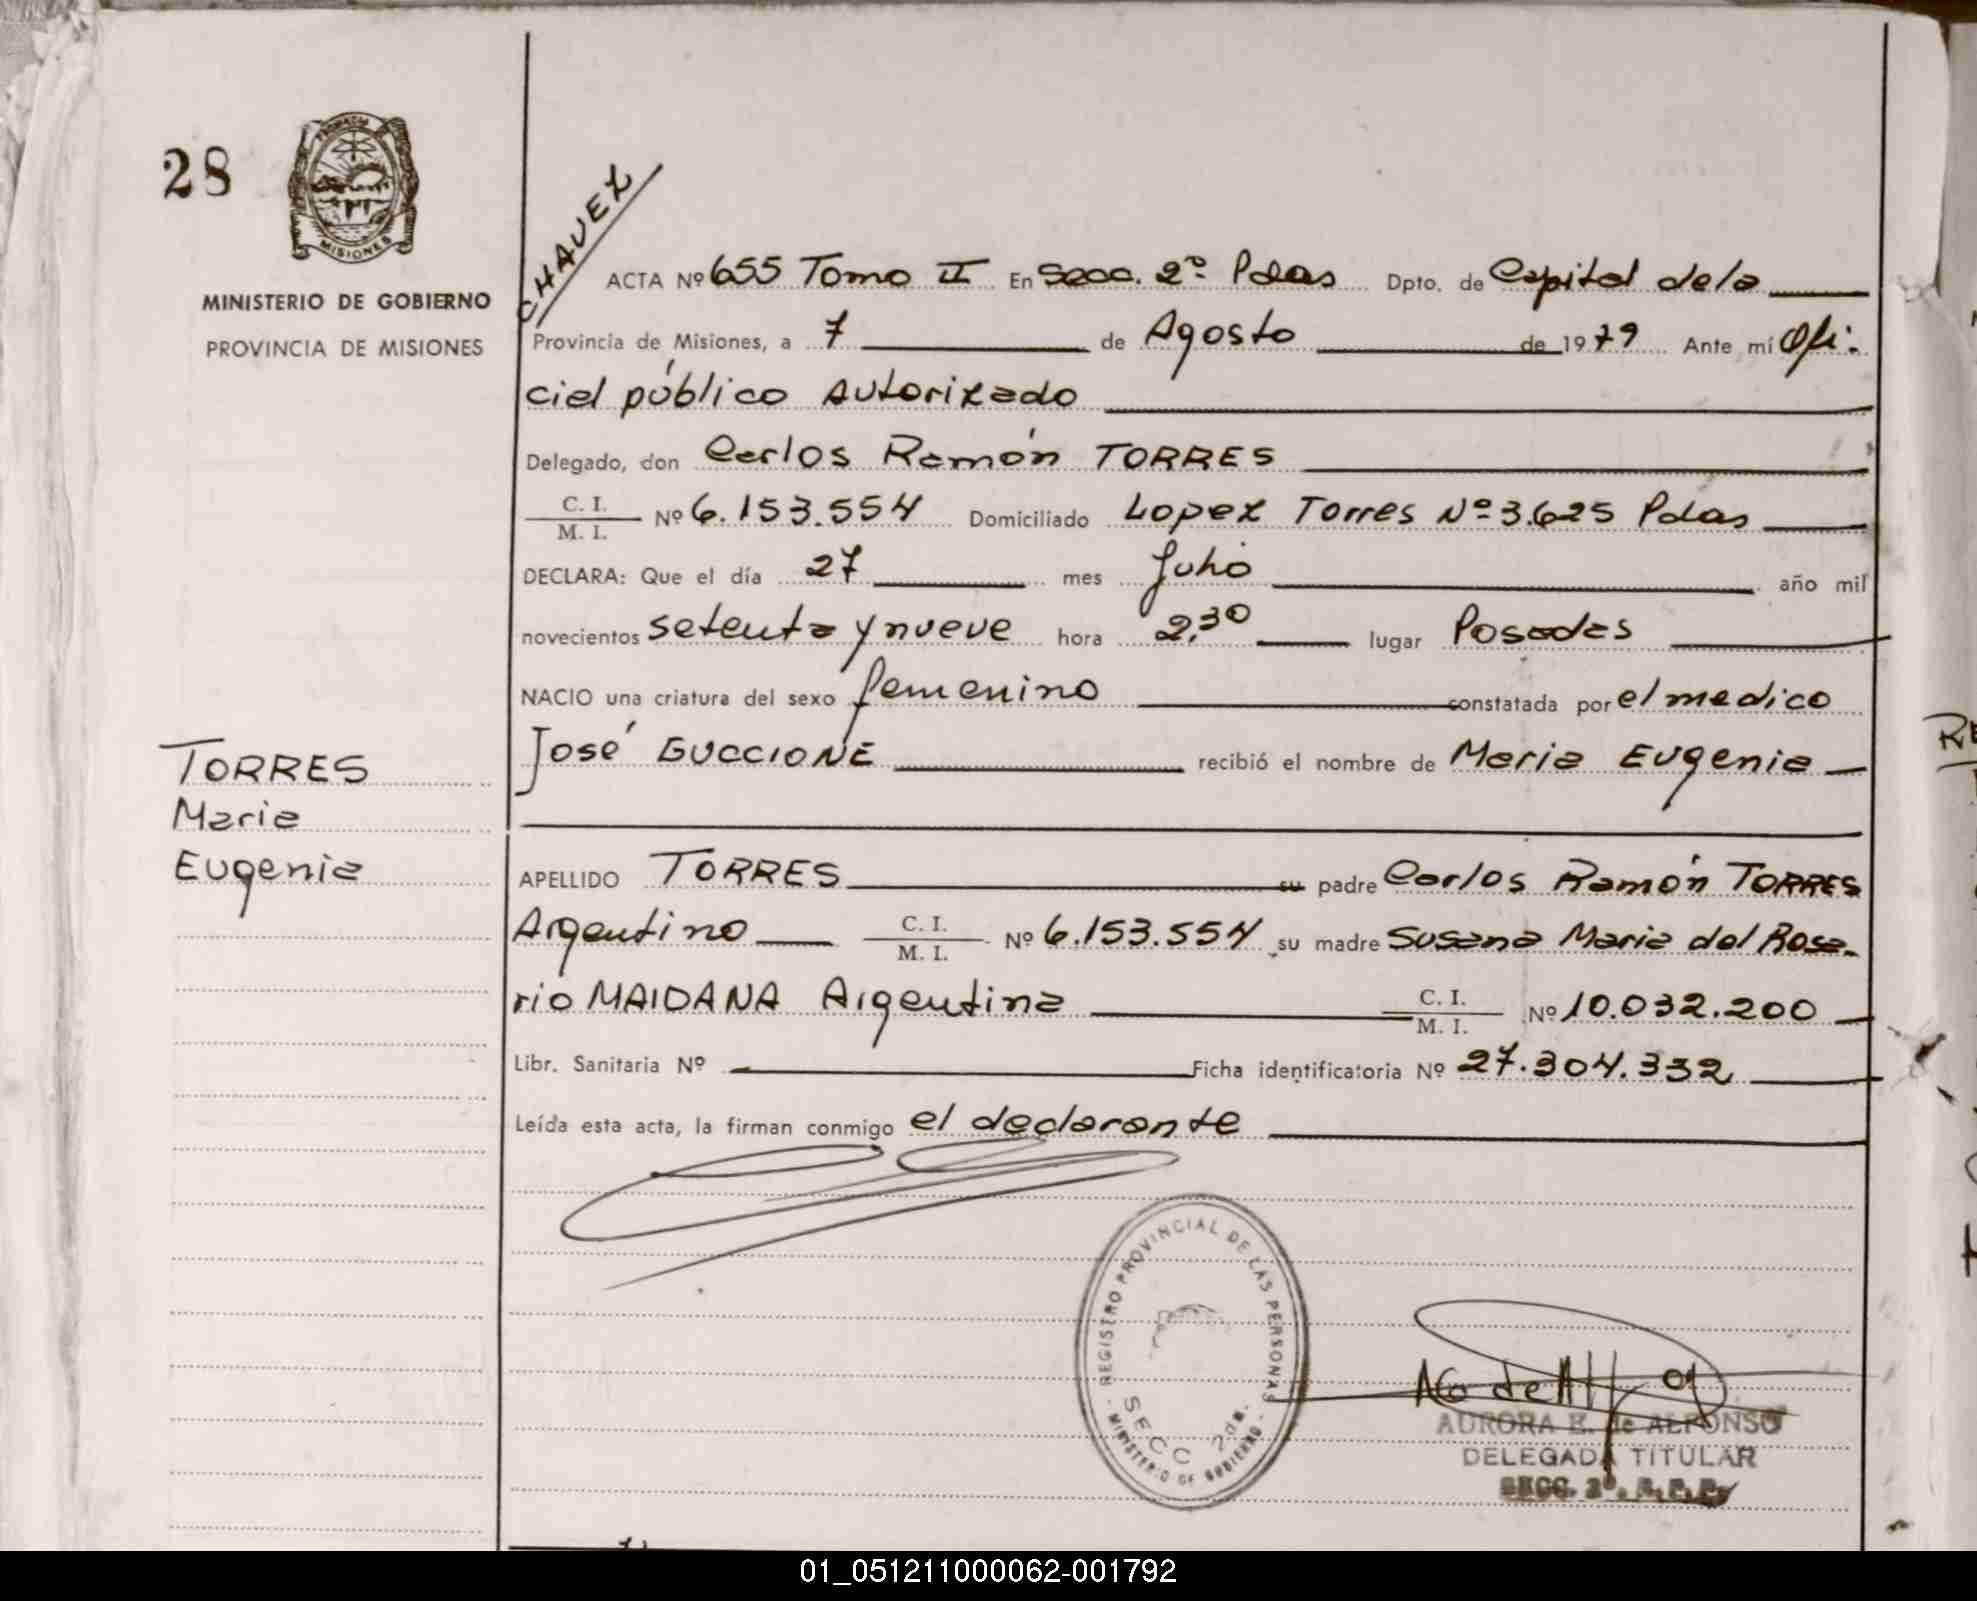 28
PROVINCIA
MISIONES
MINISTERIO DE GOBIERNO
PROVINCIA DE MISIONES
CHAVEZ
ACTA Nº 655 Tomo II En Secc. 2º Pdas Dpto. de Capital de la
Provincia de Misiones, a 7 de Agosto de 1979 Ante mí Ofi-
cial público Autorizado
Delegado, don Carlos Ramón TORRES
C. I.
M. I. Nº 6.153.554 Domiciliado Lopez Torres Nº 3.625 Pdas
DECLARA: Que el día 27 mes Julio año mil
novecientos setenta y nueve hora 2,30 lugar Posadas
NACIO una criatura del sexo femenino constatada por el medico
José GUCCIONE recibió el nombre de Maria Eugenia
TORRES
Maria
Eugenia
APELLIDO TORRES su padre Carlos Ramón TORRES
Argentino C. I.
M. I. Nº 6.153.554 su madre Susana Maria del Rosa-
rio MAIDANA Argentina C. I.
M. I. Nº 10.032.200
Libr. Sanitaria Nº Ficha identificatoria Nº 27.304.332
Leída esta acta, la firman conmigo el declarante
REGISTRO PROVINCIAL DE LAS PERSONAS
SECC 2da.
- MINISTERIO DE GOBIERNO -
AURORA E. de ALFONSO
DELEGADA TITULAR
SECC. 2º. R.P.P.
01_051211000062-001792